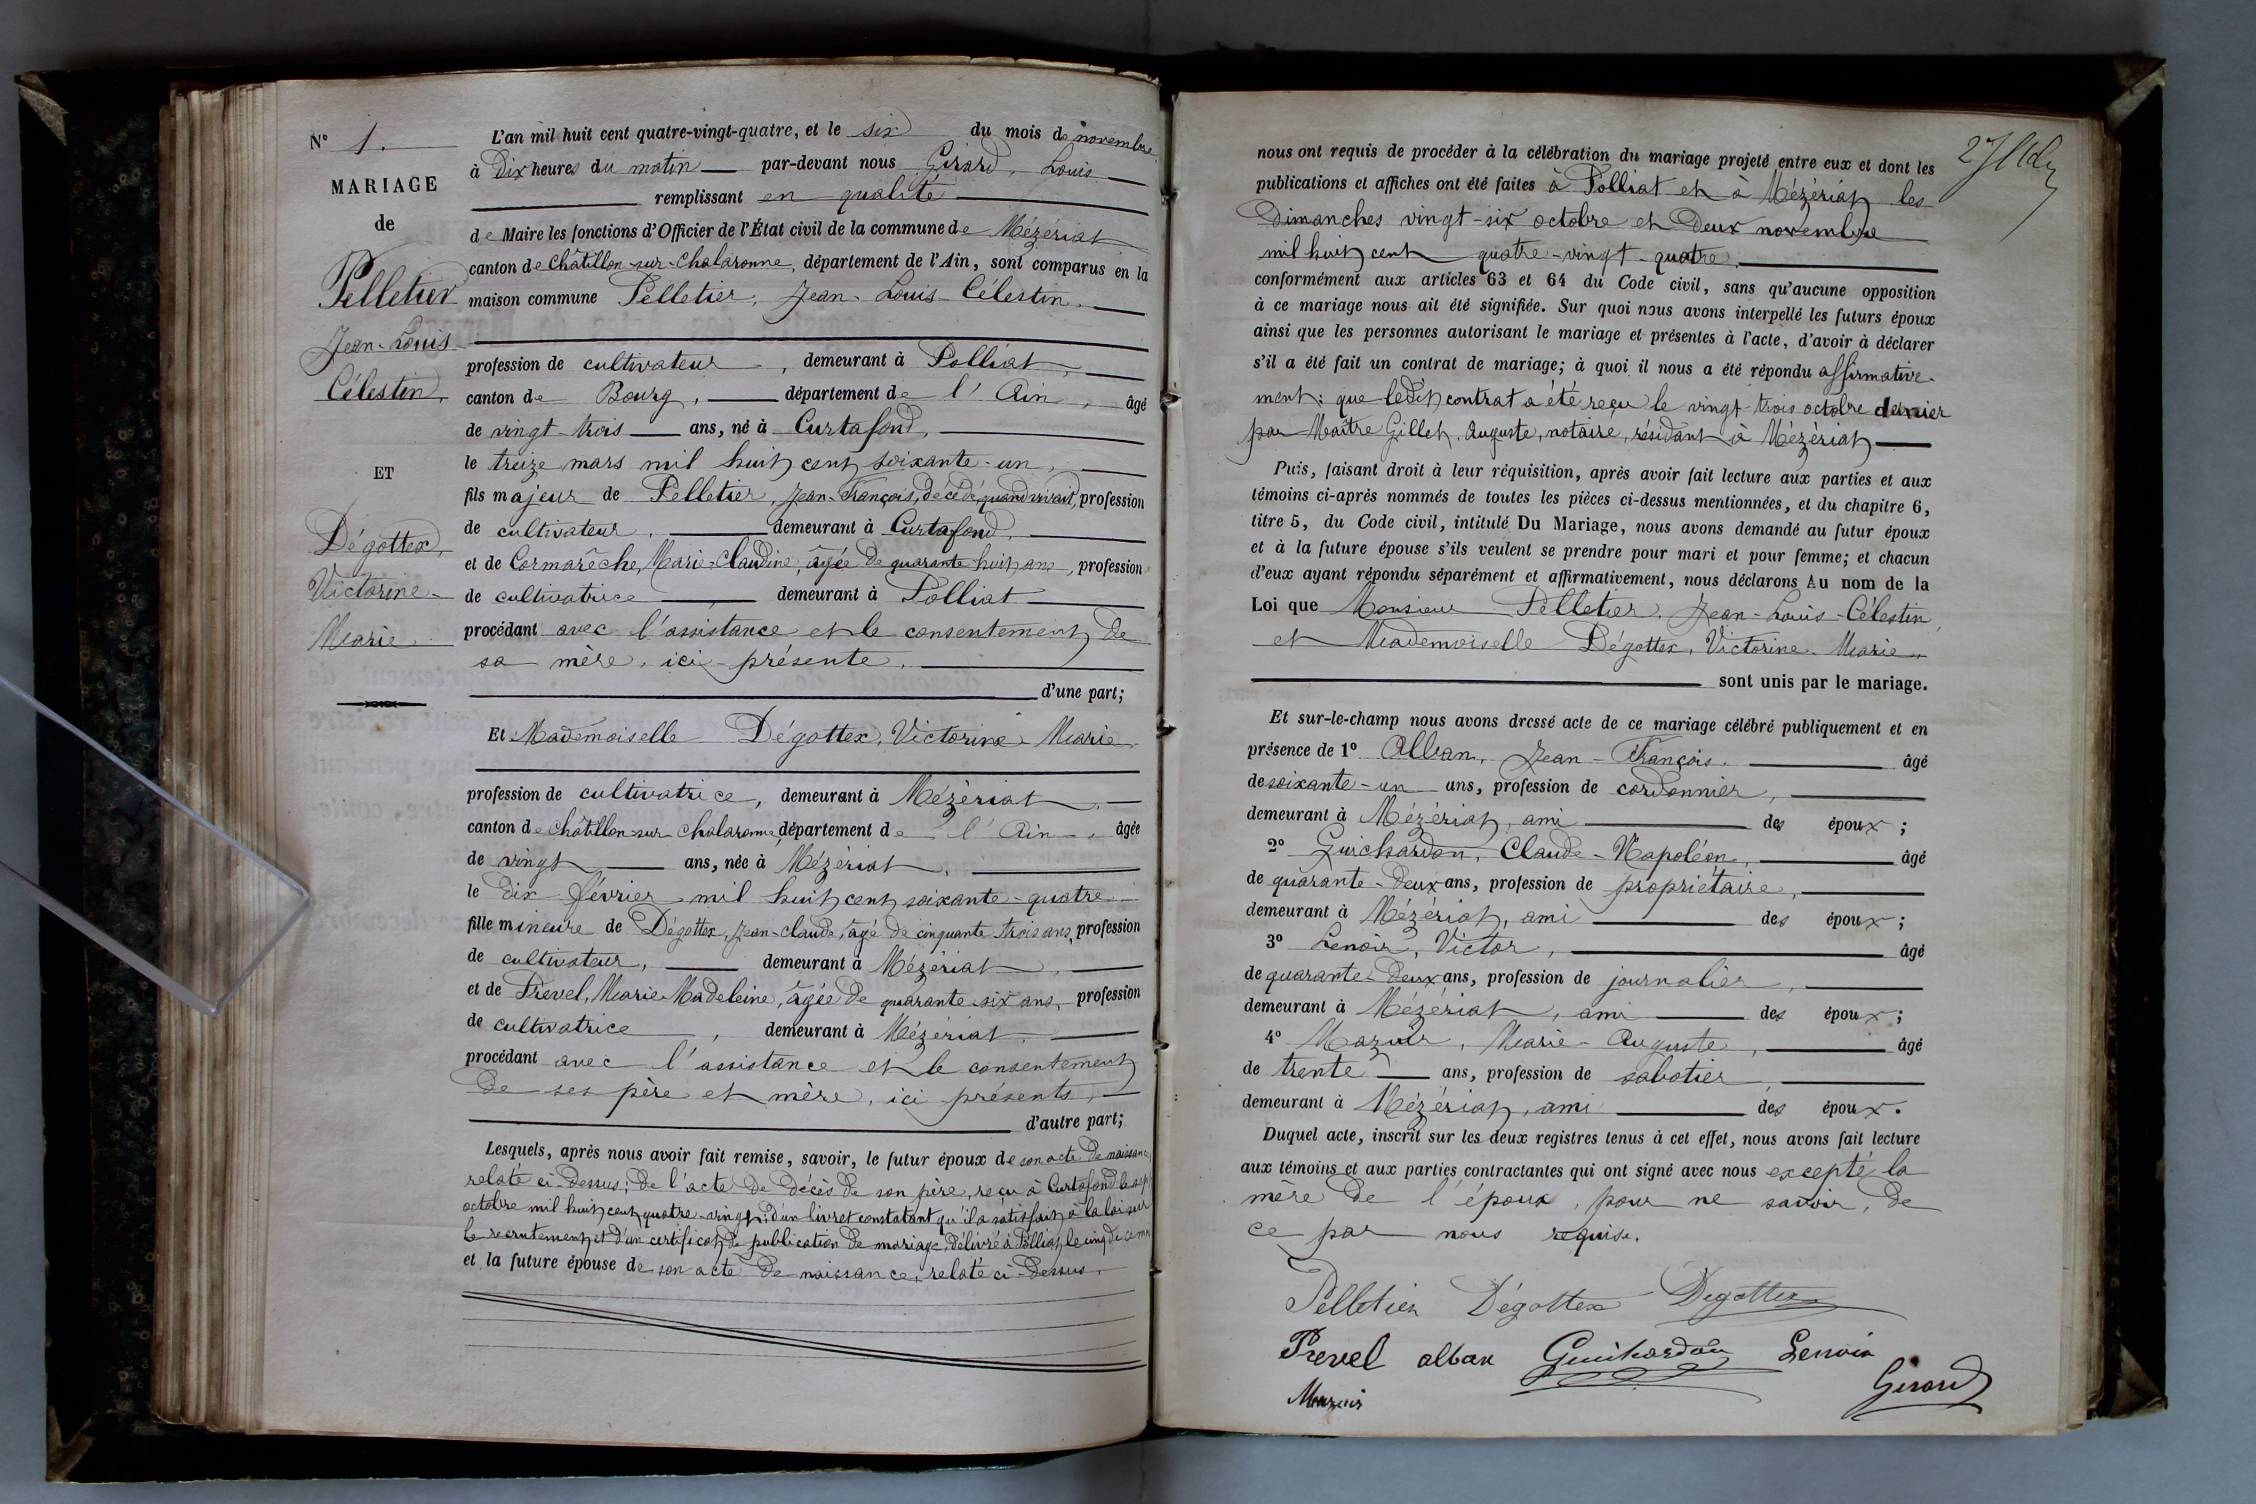 N° 1.
MARIAGE
de
Pelletier
Jean-Louis
Célestin,
ET
Dégottex,
Victorine-
Marie.
L'an mil huit cent quatre-vingt-quatre, et le six du mois de novembre
à Dix heures du matin par-devant nous Girard, Louis
remplissant en qualité
de Maire les fonctions d'Officier de l'État civil de la commune de Mézériat
canton de Châtillon-sur-Chalaronne, département de l'Ain, sont comparus en la
maison commune Pelletier, Jean-Louis-Célestin.
profession de cultivateur, demeurant à Polliat,
canton de Bourg, département de l'Ain, âgé
de vingt-trois ans, né à Curtafond,
le treize mars mil huit cent soixante-un,
fils majeur de Pelletier, Jean-François, décédé, quand vivait, profession
de cultivateur, demeurant à Curtafond,
et de Cormarêche, Marie-Claudine, âgée de quarante huit ans, profession
de cultivatrice, demeurant à Polliat
procédant avec l'assistance et le consentement de
sa mère, ici présente,
d'une part;
Et Mademoiselle Dégottex, Victorine-Marie
profession de cultivatrice, demeurant à Mézériat,
canton de Châtillon-sur-Chalaronne, département de l'Ain, âgée
de vingt ans, née à Mézériat,
le dix février mil huit cent soixante-quatre
fille mineure de Dégottex, Jean-Claude, âgé de cinquante trois ans, profession
de cultivateur, demeurant à Mézériat,
et de Prevel, Marie-Madeleine, âgée de quarante-six ans, profession
de cultivatrice, demeurant à Mézériat,
procédant avec l'assistance et le consentement
de ses père et mère, ici présents,
d'autre part;
Lesquels, après nous avoir fait remise, savoir, le futur époux de son acte de naissance,
relaté ci-dessus; de l'acte de décès de son père, reçu à Curtafond le sept
octobre mil huit cent quatre-vingt; d'un livret constatant qu'il a satisfait à la loi sur
le recrutement et d'un certificat de publication de mariage, délivré à Polliat, le cinq de ce mois
et la future épouse de son acte de naissance, relaté ci-dessus.
nous ont requis de procéder à la célébration du mariage projeté entre eux et dont les
publications et affiches ont été faites à Polliat et à Mézériat les
Dimanches vingt-six octobre et Deux novembre
mil huit cent quatre-vingt-quatre,
conformément aux articles 63 et 64 du Code civil, sans qu'aucune opposition
à ce mariage nous ait été signifiée. Sur quoi nous avons interpellé les futurs époux
ainsi que les personnes autorisant le mariage et présentes à l'acte, d'avoir à déclarer
s'il a été fait un contrat de mariage; à quoi il nous a été répondu affirmative-
ment: que ledit contrat a été reçu le vingt-trois octobre dernier
par Maître Gillet, Auguste, notaire, résidant à Mézériat
Puis, faisant droit à leur réquisition, après avoir fait lecture aux parties et aux
témoins ci-après nommés de toutes les pièces ci-dessus mentionnées, et du chapitre 6,
titre 5, du Code civil, intitulé Du Mariage, nous avons demandé au futur époux
et à la future épouse s'ils veulent se prendre pour mari et pour femme; et chacun
d'eux ayant répondu séparément et affirmativement, nous déclarons Au nom de la
Loi que Monsieur Pelletier, Jean-Louis-Célestin,
et Mademoiselle Dégottex, Victorine-Marie,
sont unis par le mariage.
Et sur-le-champ nous avons dressé acte de ce mariage célébré publiquement et en
présence de 1° Alban, Jean-François, âgé
de soixante-un ans, profession de cordonnier,
demeurant à Mézériat, ami des époux;
2° Guichardon, Claude-Napoléon, âgé
de quarante-deux ans, profession de propriétaire,
demeurant à Mézériat, ami des époux;
3° Lenoir, Victor, âgé
de quarante-deux ans, profession de journalier,
demeurant à Mézériat, ami des époux;
4° Mazuir, Marie-Auguste, âgé
de trente ans, profession de sabotier,
demeurant à Mézériat, ami des époux.
Duquel acte, inscrit sur les deux registres tenus à cet effet, nous avons fait lecture
aux témoins et aux parties contractantes qui ont signé avec nous excepté la
mère de l'époux, pour ne savoir, de
ce par nous requise.
Pelletier Dégottex Degottex
Prevel alban Guichardon Lenoir
Girard
Mazuir